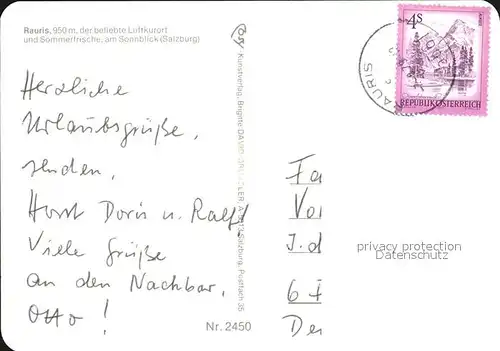 Rauris, 950 m, der beliebte Luftkurort
und Sommerfrische, am Sonnblick (Salzburg)
Herzliche
Urlaubsgrüße,
senden,
Horst Doris u. Ralf!
Viele Grüße
an den Nachbar,
Otto!
Kunstverlag, Brigitte
Salzburg, Postfach 35
Nr. 2450
4 S
REPUBLIK ÖSTERREICH
RAURIS
Fa
Vo
J. d
privacy protection
Datenschutz
6
De